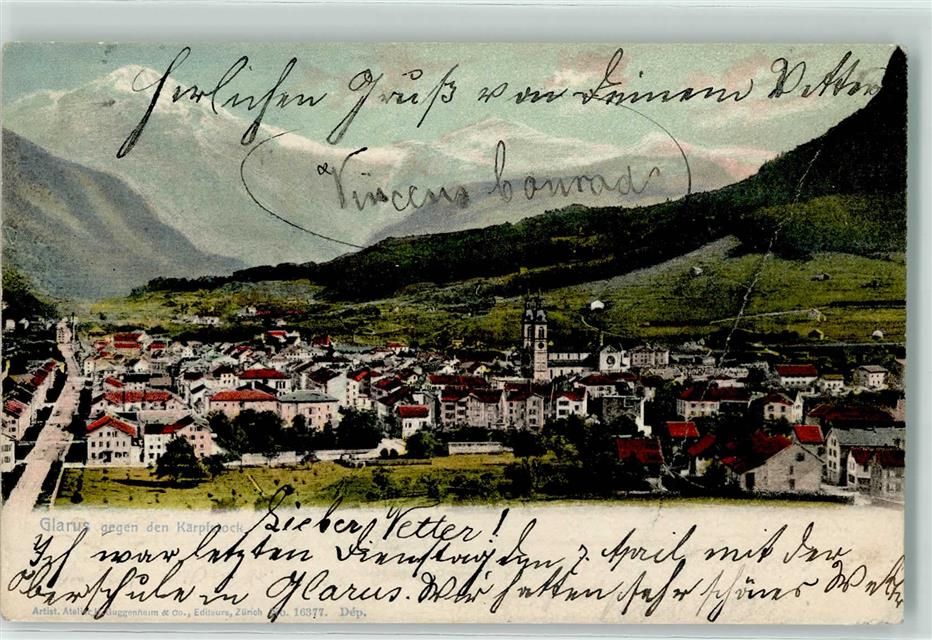 Herlichen Gruß von Deinem Vetter
Vincens Conrad
Glarus gegen den Kärpfstock
Lieber Vetter!
Ich war letzten Dienstag den 7. April mit der
Oberschule in Glarus. Wir hatten sehr schönes Wetter
Artist. Atelier H. Guggenheim & Co., Editeurs, Zürich No. 16377. Dép.